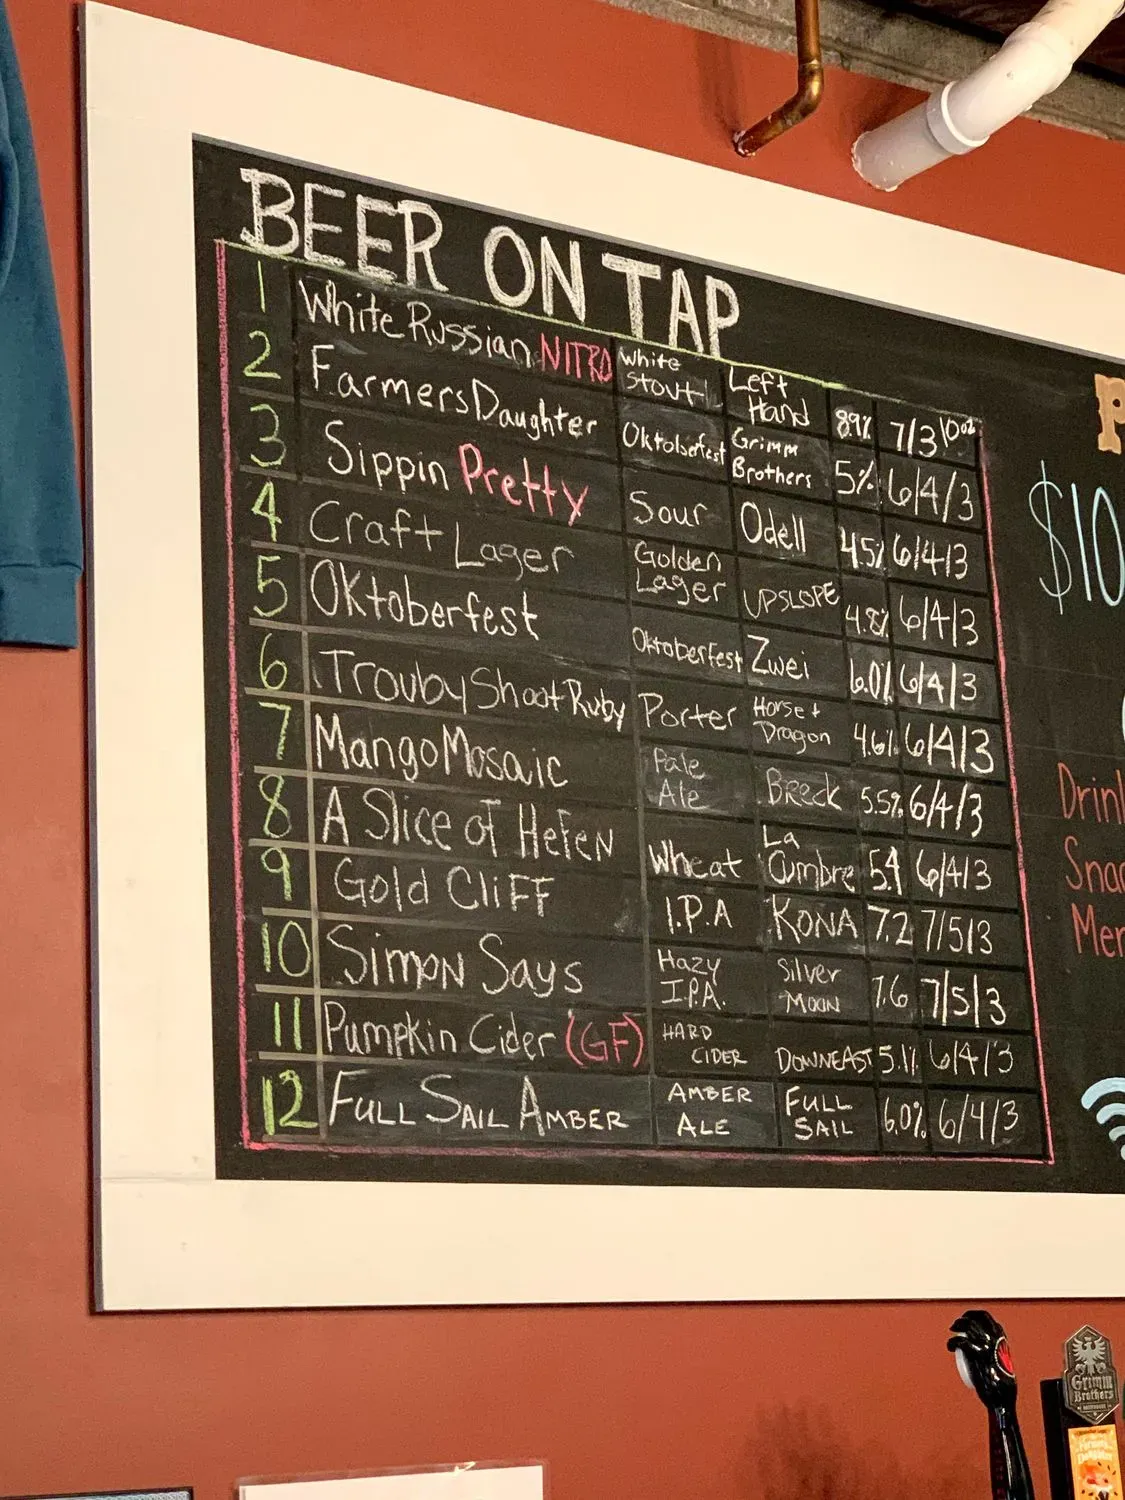 BEER ON TAP
1 White Russian NITRO White Stout Left Hand 8.9% 7/3 10oz
2 Farmers Daughter Oktoberfest Grimm Brothers 5% 6/4/3
3 Sippin Pretty Sour Odell 4.5% 6/4/3
4 Craft Lager Golden Lager UPSLOPE 4.8% 6/4/3
5 Oktoberfest Oktoberfest Zwei 6.0% 6/4/3
6 Trouby Shoot Ruby Porter Horse + Dragon 4.6% 6/4/3
7 Mango Mosaic Pale Ale Breck 5.5% 6/4/3
8 A Slice of Hefen Wheat La Cumbre 5.4 6/4/3
9 Gold Cliff I.P.A KONA 7.2 7/5/3
10 Simon Says Hazy I.P.A. Silver Moon 7.6 7/5/3
11 Pumpkin Cider (GF) HARD CIDER DOWNEAST 5.1% 6/4/3
12 FULL SAIL AMBER AMBER ALE FULL SAIL 6.0% 6/4/3
$10
Grimm
Brothers